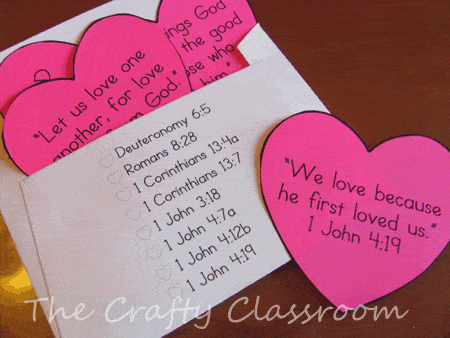 ings God
the good
ose who
him."
"Let us love one
another, for love
God."
Deuteronomy 6:5
Romans 8:28
1 Corinthians 13:4a
1 Corinthians 13:7
1 John 3:18
1 John 4:7a
1 John 4:12b
1 John 4:19
"We love because
he first loved us."
1 John 4:19
The Crafty Classroom